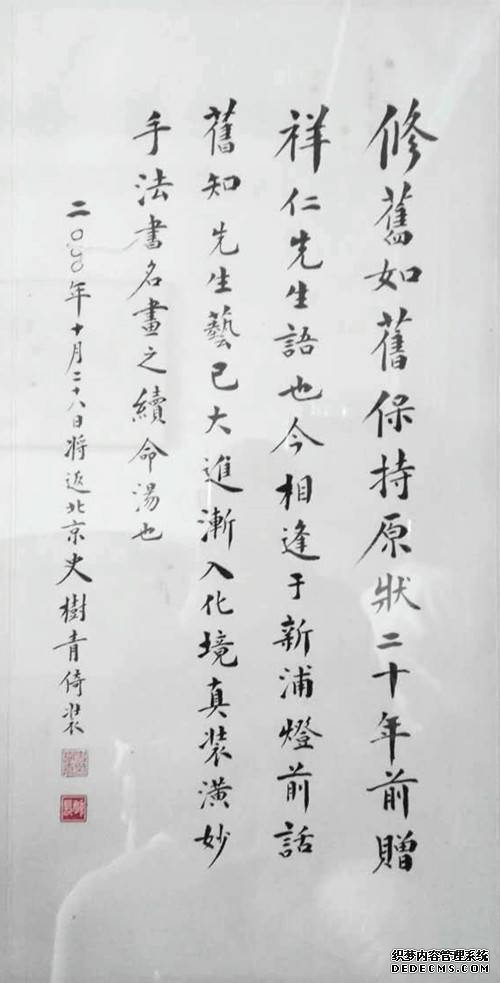 修舊如舊保持原狀二十年前贈
祥仁先生語也今相逢于新浦燈前話
舊知先生藝已大進漸入化境真裝潢妙
手法書名畫之續命湯也
二〇〇〇年十月二十八日將返北京史樹青倚裝
织梦内容管理系统
DEDECMS.COM